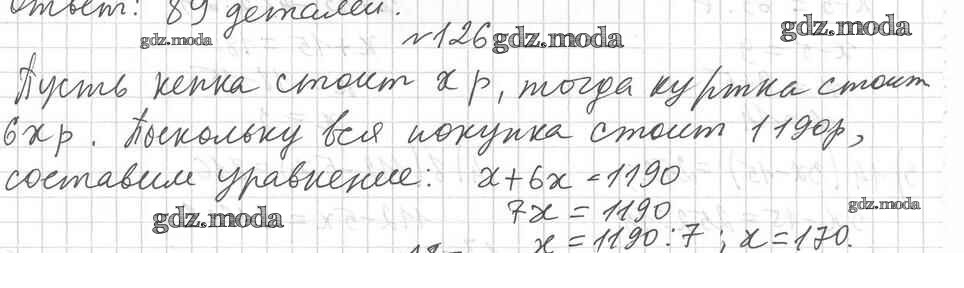 Ответ: 89 деталей.
gdz.moda
№126 gdz.moda gdz.moda
Пусть кепка стоит х р, тогда куртка стоит
6х р. Поскольку вся покупка стоит 1190р,
составим уравнение: х+6х=1190
gdz.moda 7х = 1190 gdz.moda
х = 1190:7 ; х=170.